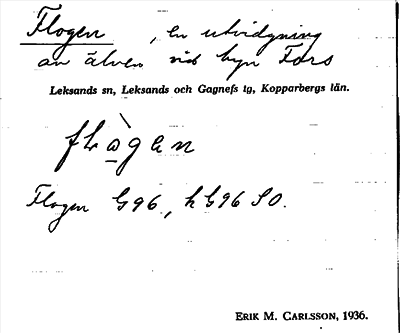 Flogen, en utvidgning
av älven vid byn Fors
Leksands sn, Leksands och Gagnefs tg, Kopparbergs län.
flògan
Flogen G96, h G96 SO.
ERIK M. CARLSSON, 1936.